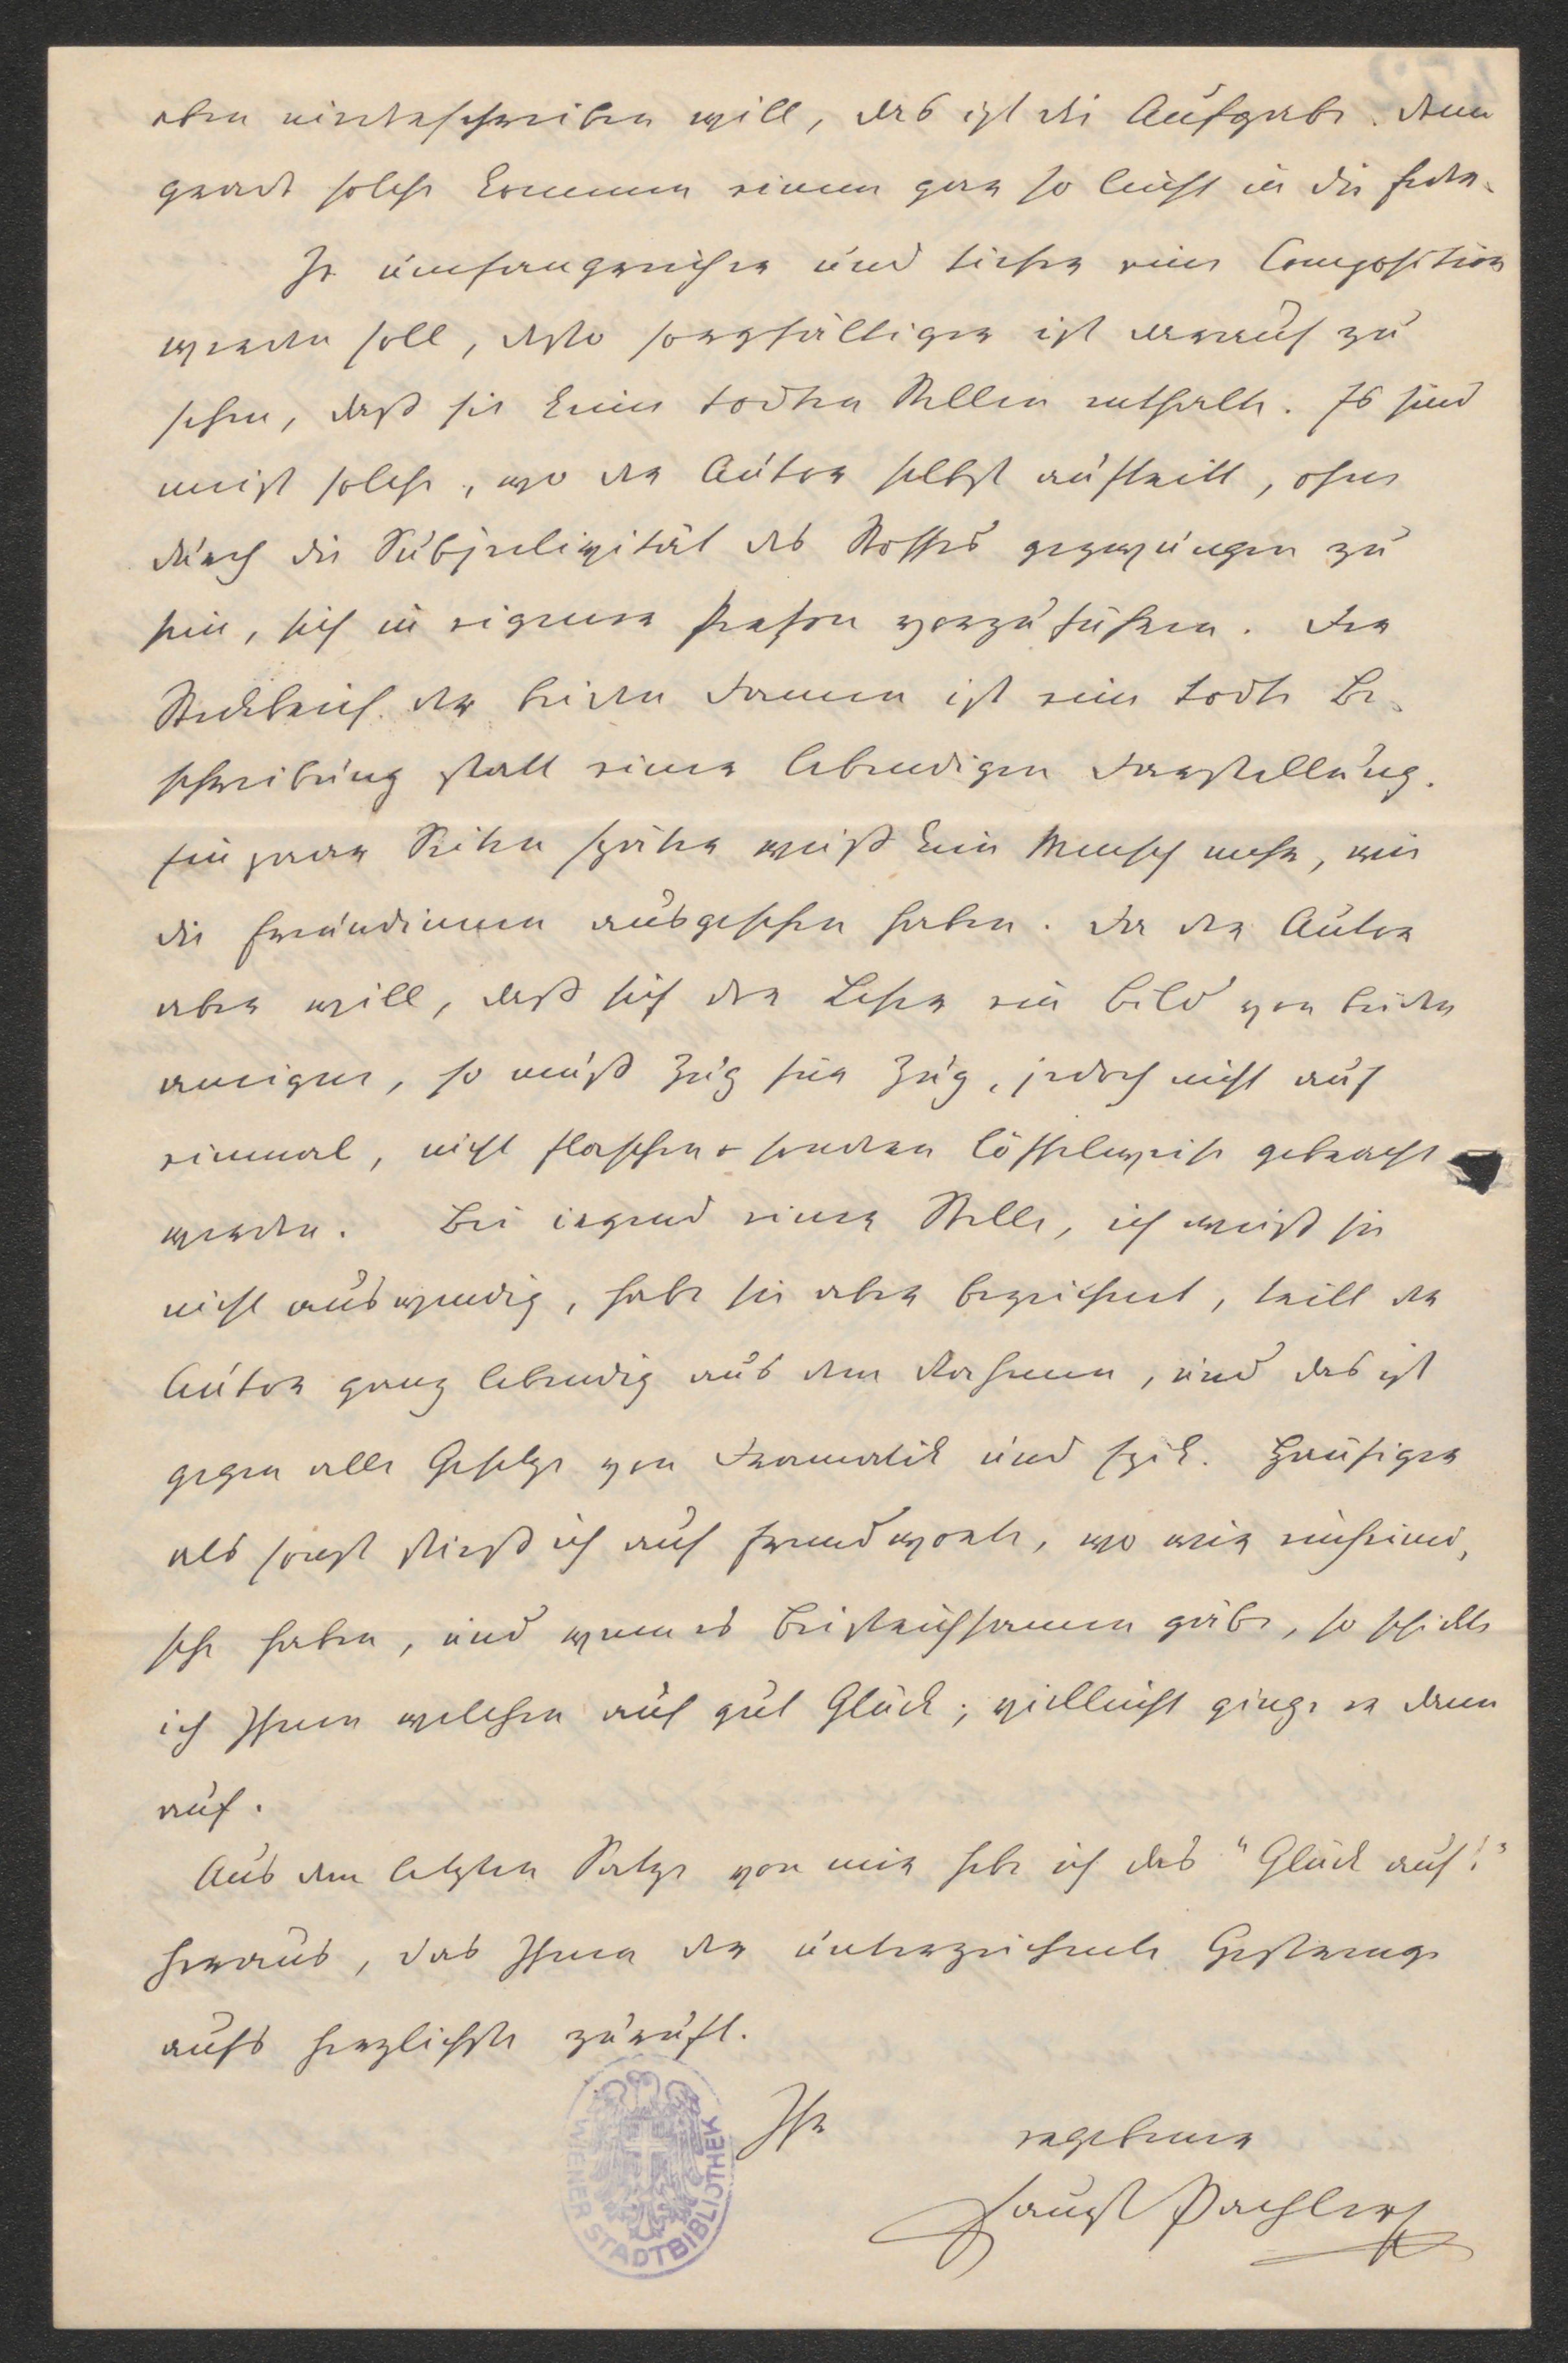 eben niederschreiben will, das ist die Aufgabe. Denn
gerade solche kommen einem gern so leicht in die Feder.
Je umfangreicher und tiefer eine Composition
werden soll, desto sorgfältiger ist darauf zu
sehen, daß sie keine todten Stellen enthalte. Es sind
meist solche, wo der Autor selbst auftritt, ohne
durch die Subjectivität des Stoffes gezwungen zu
sein, sich in eigener Person vorzuführen. Der
Steckbrief der beiden Damen ist eine todte Be-
schreibung statt einer lebendigen Darstellung.
Ein paar Seiten später weiß kein Mensch mehr, wie
die Freundinnen ausgesehen haben. Da der Autor
aber will, daß sich der Leser ein Bild von beiden
aneigne, so muß Zug für Zug, jedoch nicht auf
einmal, nicht flaschen- sondern löffelweise gebracht
werden. Bei irgend einer Stelle, ich weiß sie
nicht auswendig, habe sie aber bezeichnet, tritt der
Autor ganz lebendig aus dem Rahmen, und das ist
gegen alle Gesetze von Dramatik und Epik. Häufiger
als sonst stieß ich auf Fremdworte, wo wir einheimi-
sche haben, und wenn es Beistrichsamen gäbe, so schickte
ich Ihnen welchen auf gut Glück; vielleicht ginge er dann
auf.
Aus dem letzten Satze von mir hebe ich das "Glück auf!"
heraus, das Ihnen der unterzeichnete Gestrenge
aufs herzlichste zuruft.
Ihr ergebener
Faust Pachler
WIENER STADTBIBLIOTHEK